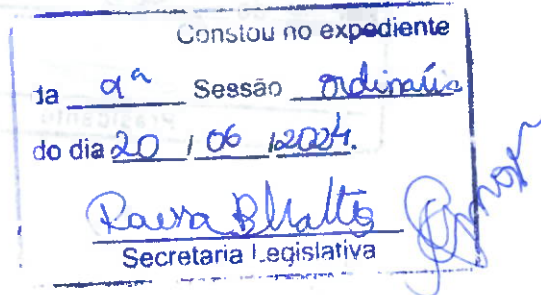 Constou no expediente
da Sessão ordinária
do dia 20 / 06 / 2024.
Secretaria Legislativa